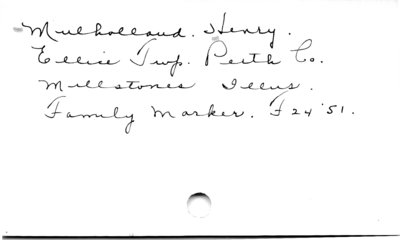 Mulholland. Henry.
Ellice Twp. Perth Co.
Millstones Illus.
Family Marker. F 24 '51.